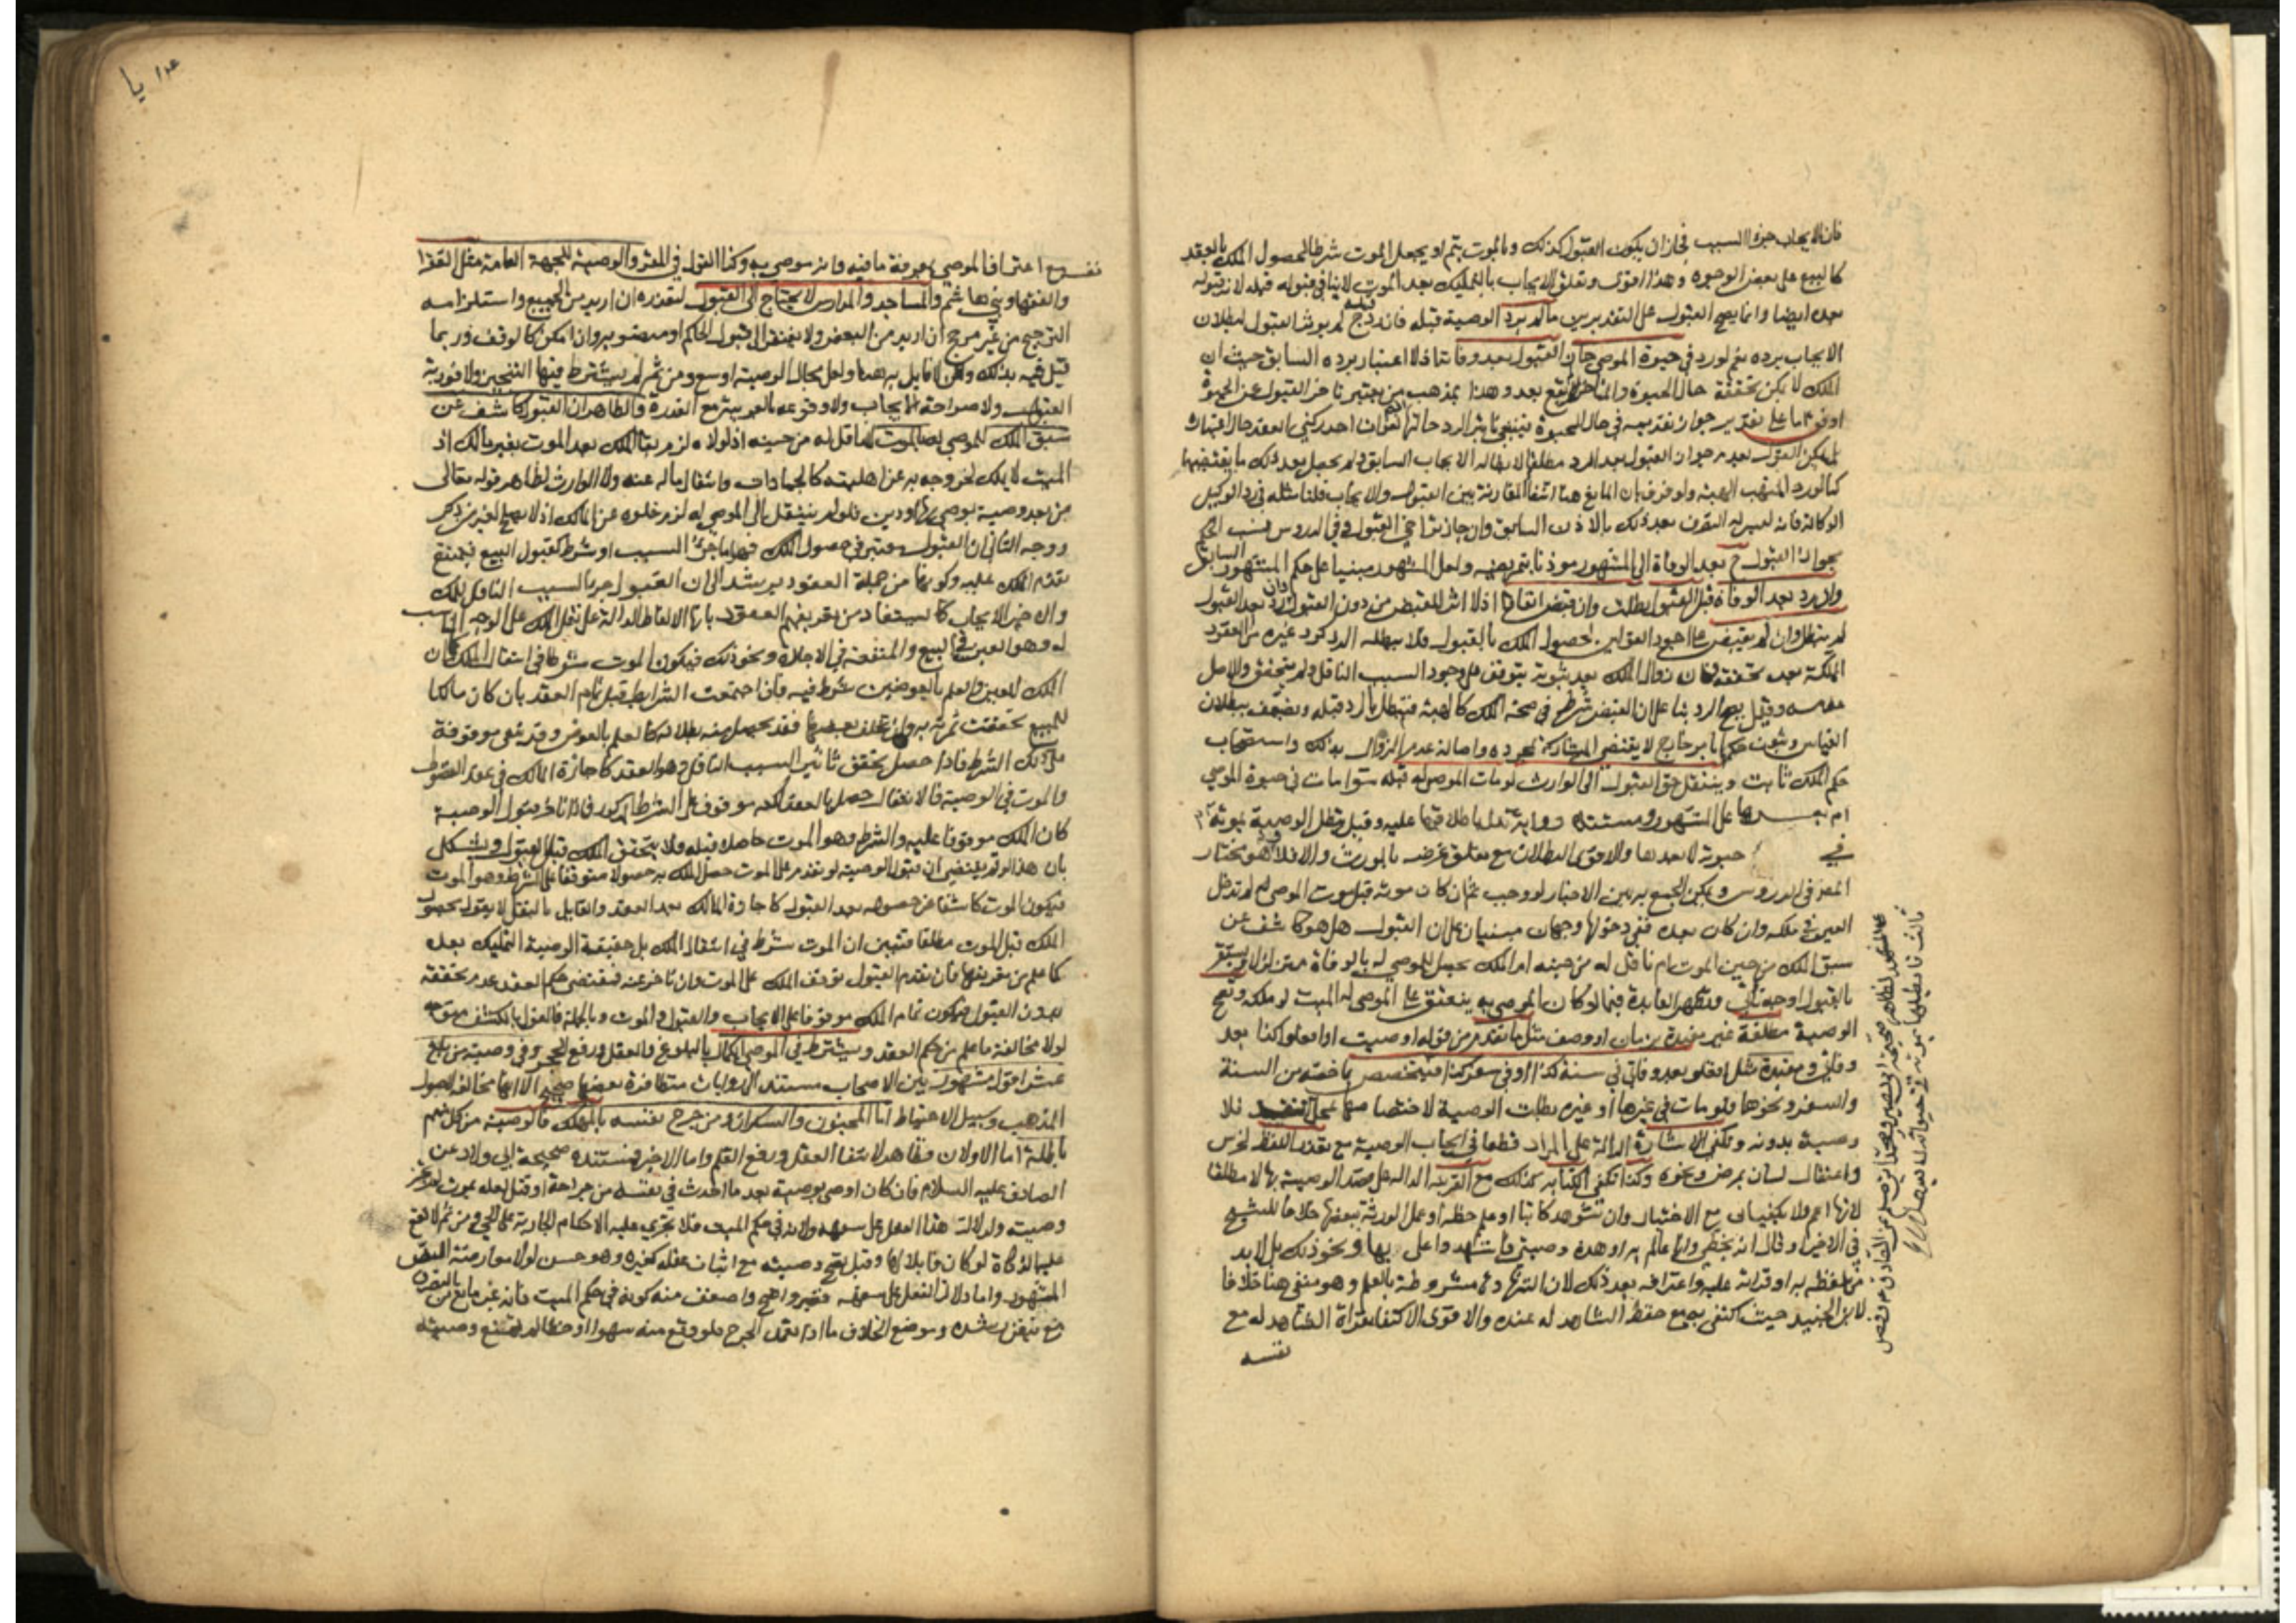 فان الايجاب جزء السبب فجاز ان يكون القبول كذلك وبالموت يتم او يجعل الموت شرطا لحصول الملك بالعقد
كالبيع على بعض الوجوه وهذا اقوى وتعلق الايجاب بالتمليك بعد الموت لا ينافى قبوله قبله لان قبوله
بعده ايضا وانما يصح القبول على التقديرين ما لم يرد الوصية قبله فان رد ح لم يوثر القبول لبطلان
الايجاب برده نعم لو رد في حيوة الموصي جاز القبول بعد وفاته اذ لا اعتبار برده السابق حيث ان
الملك لا يمكن تحققه حال الحيوة والمتاخر لم يقع بعد وهذا بمذهب من يعتبر تاخر القبول عن الحيوة
اوفق اما على تقدير جواز تقديمه في حال الحيوة فينبغي تاثير الرد حالتها ايضا لفوات احد ركني العقد حال اعتباره
بل يمكن القول بعدم جواز القبول بعد الرد مطلقا لابطاله الايجاب السابق ولم يحصل بعد ذلك ما يقتضيها
كما لو رد المتهب الهبة ولو فرق بان المانع هنا انتفاء المقارنة بين القبول والايجاب قلنا مثله في رد الوكيل
الوكالة فانه ليس له التصرف بعد ذلك بالاذن السابق وان جاز تراخي القبول وفي الدروس نسب الحكم
بجواز القبول ح بعد الوفاة الى المشهور موذنا بتمريضه ولعل المشهور مبني على حكم المشهور السابق
وان رد بعد الوفاة قبل القبول بطلت وان قبض اتفاقا اذ لا اثر للقبض من دون القبول وان رد بعد القبول
لم تبطل وان لم يقبض على اجود القولين لحصول الملك بالقبول فلا يبطله الرد كرد غيره من العقود
المملكة بعد تحققه فان زوال الملك بعد ثبوته يتوقف على وجود السبب الناقل ولم يتحقق والاصل
عدمه وقيل يصح الرد بناء على ان القبض شرط في صحة الملك كالهبة فتبطل بالرد قبله ويضعف ببطلان
القياس وثبوت حكمها بامر خارج لا يقتضي المشاركة بمجرده واصالة عدم الزوال بذلك واستصحاب
حكم الملك ثابت وينتقل حق القبول الى الوارث لو مات الموصى له قبله سواء مات في حيوة الموصي
ام بعدها على المشهور ومستنده رواية تدل باطلاقها عليه وقيل تبطل الوصية بموته
في حيوته لا بعدها والاقوى البطلان مع تعلق غرضه بالمورث والا فلا وهو مختار
المصنف في الدروس ويمكن الجمع به بين الاخبار لو وجب ثم ان كان موته قبل موت الموصي لم تدخل
العين في ملكه وان كان بعده ففي دخولها وجهان مبنيان على ان القبول هل هو كاشف عن
سبق الملك من حين الموت ام ناقل له من حينه ام الملك يحصل للموصى له بالوفاة متزلزلا ويستقر
بالقبول اوجه تاتي وتظهر الفايدة فيما لو كان الموصى به ينعتق على الموصى له الميت لو ملكه وتصح
الوصية مطلقة غير مقيدة بزمان او وصف مثل ما تقدم من قوله اوصيت او افعلوا كذا بعد
وفاتي ومقيدة مثل افعلوا بعد وفاتي في سنة كذا او في سفر كذا فيتخصص بما خصه من السنة
والسفر ونحوها فلو مات في غيرها او غيره بطلت الوصية لاختصاصها بمحل القيد فلا
وصية بدونه وتكفي الاشارة الدالة على المراد قطعا في ايجاب الوصية مع تعذر اللفظ لخرس
واعتقال لسان بمرض ونحوه وكذا تكفي الكتابة كذلك مع القرينة الدالة على قصد الوصية بها لا مطلقا
لانها اعم ولا يكفيان مع الاختيار وان شوهد كاتبا او علم خطه او عمل الورثة ببعضها خلافا للشيخ
في الاخير او قال انه بخطي وانا عالم به او هذه وصيتي فاشهدوا علي بها ونحو ذلك بل لا بد
من تلفظه به او قراته عليه واعترافه بعد ذلك لان الشهادة مشروطة بالعلم وهو منفي هنا خلافا
لابن الجنيد حيث اكتفى به مع حفظ الشاهد له عنده والاقوى الاكتفا بقراة الشاهد له مع
نفسه
اعتراف الموصي بمعرفة ما فيه وانه موصي به وكذا القول في المقر والوصية للجهة العامة مثل الفقرا
والفقها وبني هاشم والمساجد والمدارس لا يحتاج الى القبول لتعذره ان اريد من الجميع واستلزامه
الترجيح من غير مرجح ان اريد من البعض ولا يفتقر الى قبول الحاكم او منصوبه وان امكن كالوقف وربما
قيل فيه بذلك ولكن لا قايل به هنا ولعل مجال الوصية اوسع ومن ثم لم يشترط فيها التنجيز ولا فورية
القبول ولا صراحة الايجاب ولا وقوعه بالعربية مع القدرة والظاهر ان القبول كاشف عن
سبق الملك للموصى له بالموت لا ناقل له من حينه اذ لولاه لزم بقا الملك بعد الموت بغير مالك اذ
الميت لا يملك لخروجه به عن اهليته كالجمادات وانتقال ماله عنه ولا الوارث لظاهر قوله تعالى
من بعد وصية يوصى بها او دين فلو لم ينتقل الى الموصى له لزم خلوه عن المالك اذ لا يصلح لغير من ذكر
ووجه الثاني ان القبول معتبر في حصول الملك فهو اما جزء السبب او شرط كقبول البيع فيمتنع
تقدم الملك عليه وكونها من جملة العقود يرشد الى ان القبول جزء السبب الناقل للملك
والاخر الايجاب كما يستفاد من تعريفهم العقود بانها الالفاظ الدالة على نقل الملك على الوجه المناسب
له وهو العين في البيع والمنفعة في الاجارة ونحو ذلك فيكون الموت شرطا في انتقال الملك كما ان
الملك للعين والعلم بالعوضين شرط فيه فان اجتمعت الشرايط قبل تمام العقد بان كان مالكا
للمبيع تحققت ثمرته به وان تخلف بعضها فقد يحصل منه بطلانه كالعلم بالعوض وقد تبقى موقوفة
على ذلك الشرط فاذا حصل تحقق تاثير السبب الناقل وهو العقد كاجازة المالك في عقد الفضولي
والموت في الوصية فالانتقال حصل بالعقد لكنه موقوف على الشرط المذكور فاذا تاخر قبول الوصية
كان الملك موقوفا عليه والشرط وهو الموت حاصلا قبله فلا يتحقق الملك قبل القبول ويشكل
بان هذا لو تم يقتضي ان قبول الوصية لو تقدم على الموت حصل الملك به حصولا متوقفا على الشرط وهو الموت
فيكون الموت كاشفا عن حصوله بعد القبول كاجازة المالك بعد العقد والقايل بالنقل لا يقول بحصول
الملك قبل الموت مطلقا فتبين ان الموت شرط في انتقال الملك بل حقيقة الوصية التمليك بعده
كما علم من تعريفها فان تقدم القبول توقف الملك على الموت وان تاخر عنه فمقتضى حكم العقد عدم تحققه
بدون القبول فيكون تمام الملك موقوفا على الايجاب والقبول والموت وبالجملة فالقول بالكشف متوجه
لولا مخالفة ما علم من حكم العقد ويشترط في الموصي الكمال بالبلوغ والعقل ورفع الحجر وفي وصية من بلغ
عشرا قول مشهور بين الاصحاب مستنده الروايات متظافرة بعضها صحيح الا انها مخالفة لاصول
المذهب وسبيل الاحتياط اما المجنون والسكران ومن جرح نفسه بالمهلك فالوصية من كل منهم
باطلة اما الاولان فظاهر لانتفا العقل ورفع القلم واما الاخير فمستنده صحيحة ابي ولاد عن
الصادق عليه السلام فان كان اوصى بوصية بعد ما احدث في نفسه من جراحة او قتل لعله يموت لم تجز
وصيته ولدلالة هذا الفعل على سفهه ولانه في حكم الميت فلا تجري عليه الاحكام الجارية على الحي ومن ثم لا تقع
عليه الذكاة لو كان قابلا لها وقيل تصح وصيته مع ثبات عقله كغيره وهو حسن لولا معارضة النص
المشهور واما دلالة الفعل على سفهه فغير واضح واضعف منه كونه في حكم الميت فانه غير مانع من التصرف
مع تيقن رشده وموضع الخلاف ما اذا تعمد الجرح فلو وقع منه سهوا او خطا لم تمتنع وصيته